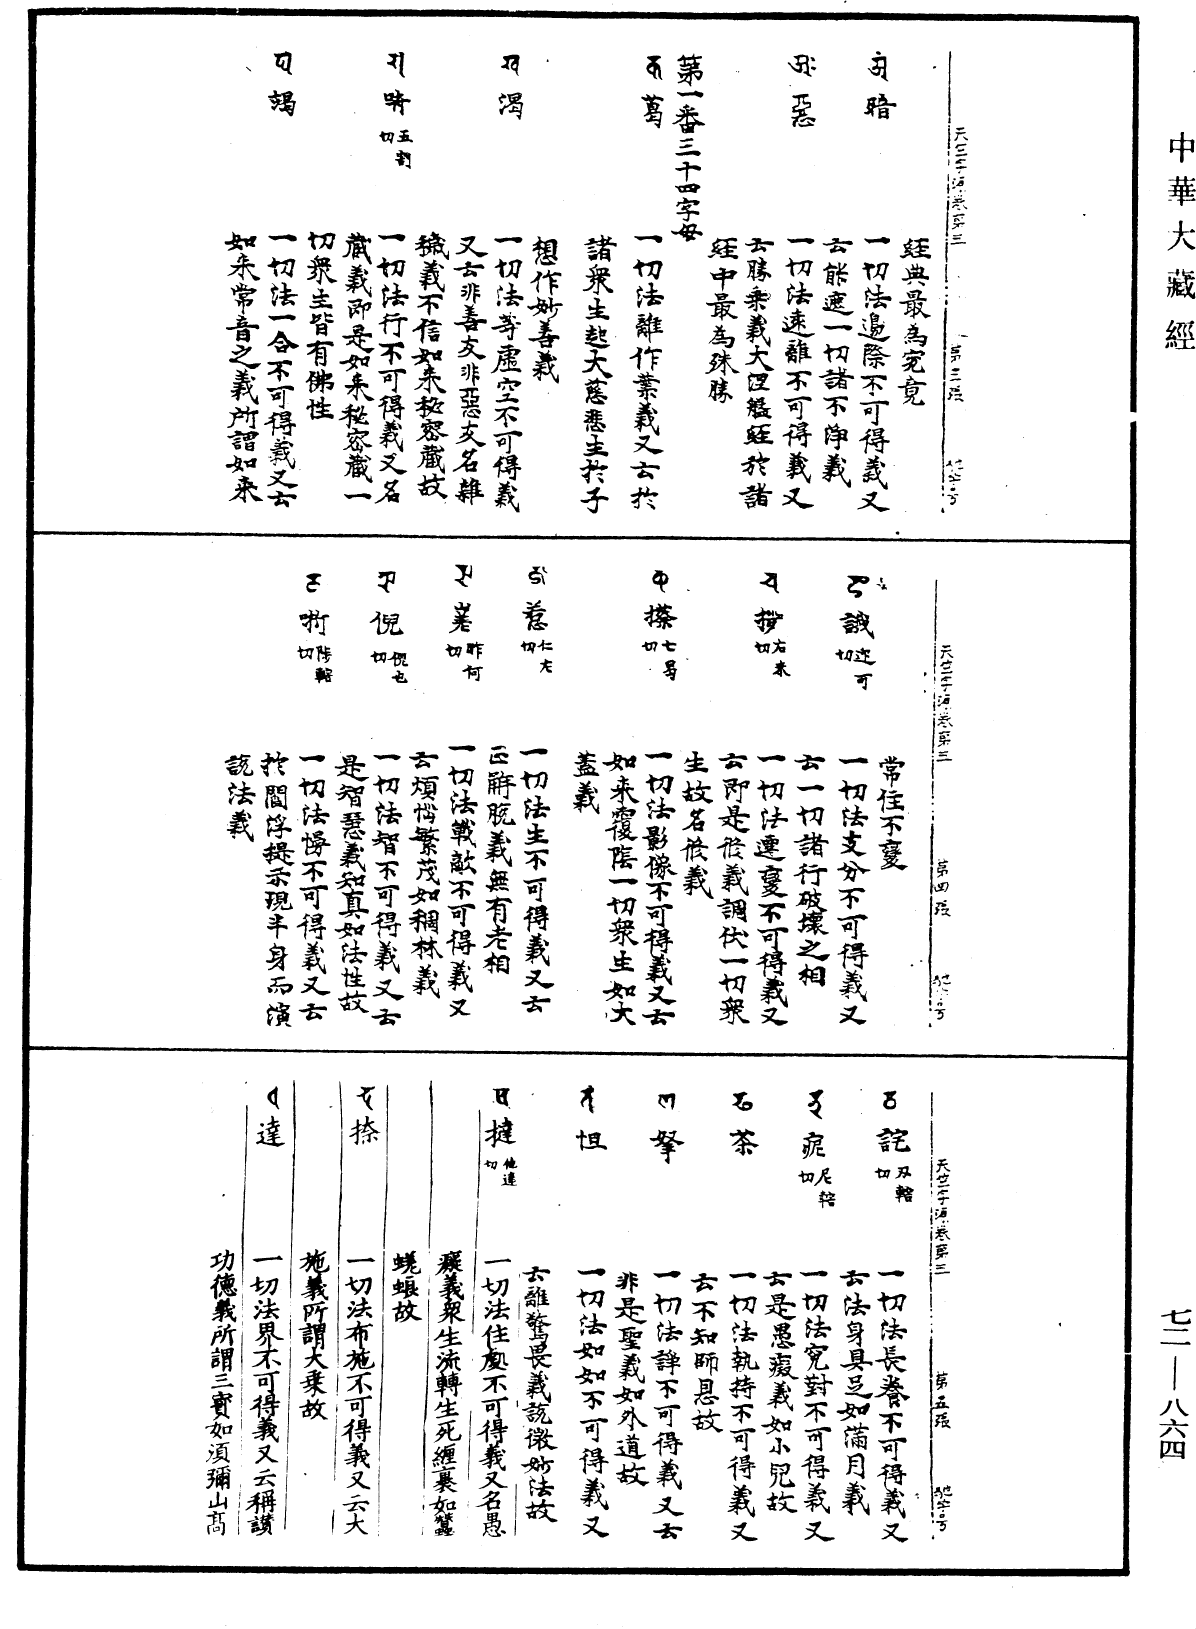 中華大藏經
天竺字源卷第三 第三張 馳字号
經典最為究竟
暗 一切法邊際不可得義又
云能遮一切諸不淨義
惡 一切法遠離不可得義又
云勝乘義大涅槃經於諸
經中最為殊勝
第一番三十四字母
葛 一切法離作業義又云於
諸衆生起大慈悲生於子
想作妙善義
渴 一切法等虛空不可得義
又云非善友非惡友名雜
穢義不信如来秘密藏故
𠾧 五割切 一切法行不可得義又名
藏義即是如来秘密藏一
切衆生皆有佛性
竭 一切法一合不可得義又云
如来常音之義所謂如来
天竺字源卷第三 第四張 馳字号
常住不變
誐 迎可切 一切法支分不可得義又
云一切諸行破壞之相
拶 一切法遷變不可得義又
云即是修義調伏一切衆
生故名修義
攃 七曷切 一切法影像不可得義又云
如来覆蔭一切衆生如大
蓋義
惹 仁左切 一切法生不可得義又云
正解脫義無有老相
嵳 昨何切 一切法戰敵不可得義又
云煩惱繁茂如稠林義
倪 倪也切 一切法智不可得義又云
是智慧義知真如法性故
哳 陟轄切 一切法慢不可得義又云
於閻浮提示現半身而演
說法義
天竺字源卷第三 第五張 馳字号
詫 丑轄切 一切法長養不可得義又
云法身具足如滿月義
痆 尼轄切 一切法究對不可得義又
云是愚癡義如小兒故
茶 一切法執持不可得義又
云不知師恩故
拏 一切法諍不可得義又云
非是聖義如外道故
怛 一切法如如不可得義又
云離驚畏義說微妙法故
撻 他達切 一切法住處不可得義又名愚
癡義衆生流轉生死纏裹如蠶
蜣蜋故
捺 一切法布施不可得義又云大
施義所謂大乘故
達 一切法界不可得義又云稱讃
功德義所謂三寶如須彌山髙
七二—八六四